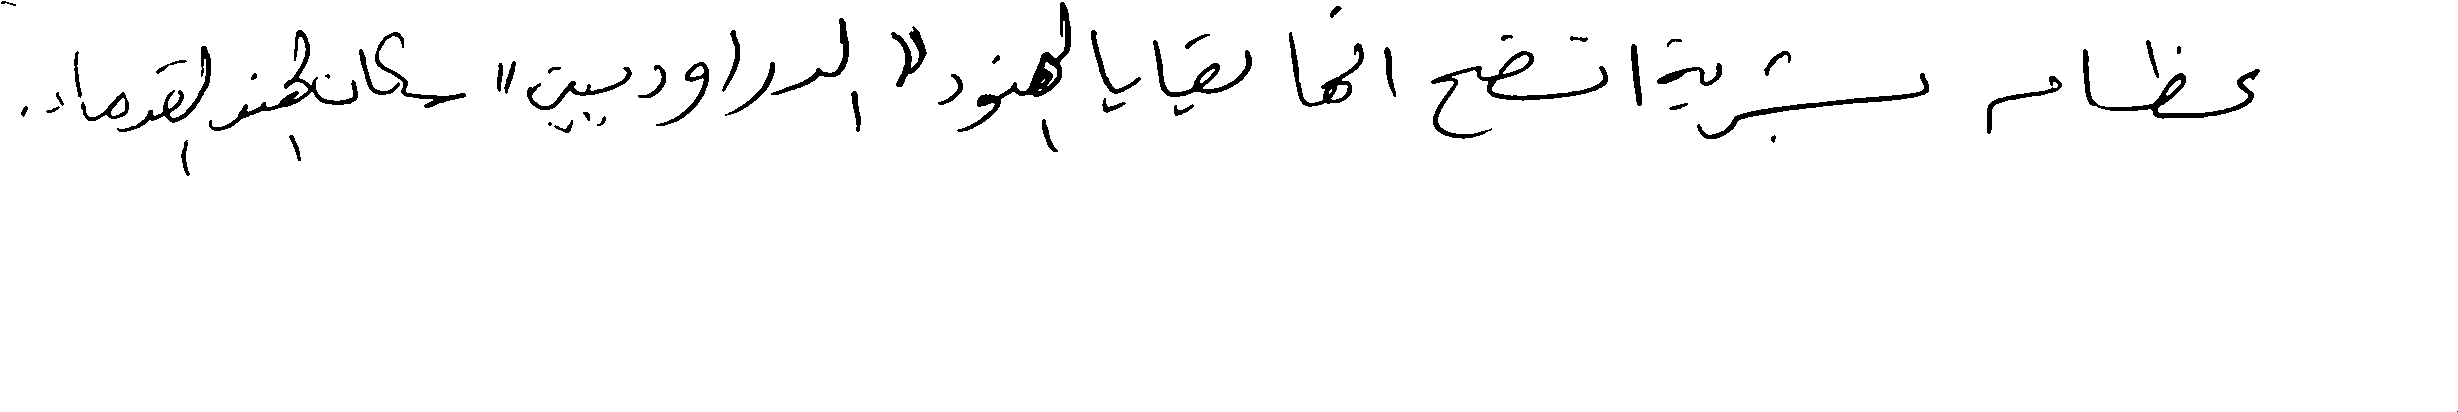 عظام بشرية اتضح انها بقايا الهنود "الدراوديين" سكان الهند القدماء.